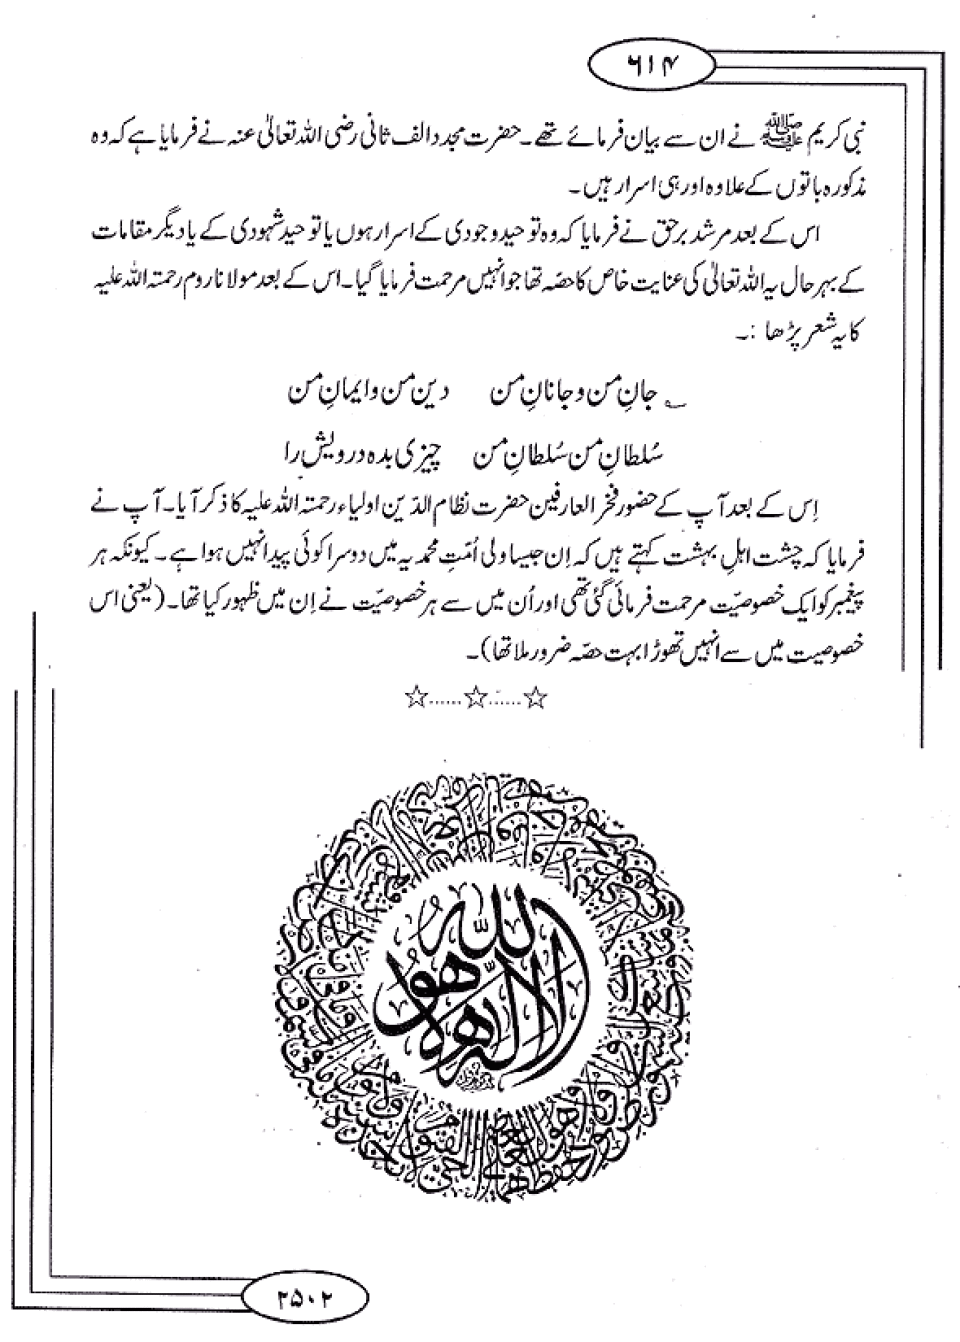 ۶۱۴
نبی کریم ﷺ نے ان سے بیان فرمائے تھے۔ حضرت مجدد الف ثانی رضی اللہ تعالیٰ عنہ نے فرمایا ہے کہ وہ
مذکورہ باتوں کے علاوہ اور ہی اسرار ہیں۔
اس کے بعد مرشد برحق نے فرمایا کہ وہ توحید وجودی کے اسرار ہوں یا توحید شہودی کے یا دیگر مقامات
کے بہر حال یہ اللہ تعالیٰ کی عنایت خاص کا حصّہ تھا جو انہیں مرحمت فرمایا گیا۔ اس کے بعد مولانا روم رحمتہ اللہ علیہ
کا یہ شعر پڑھا :۔
؎ جانِ من و جانانِ من دین من و ایمانِ من
سُلطانِ من سُلطانِ من چیزی بدہ درویش را
اِس کے بعد آپ کے حضور فخر العارفین حضرت نظام الدّین اولیاء رحمتہ اللہ علیہ کا ذکر آیا۔ آپ نے
فرمایا کہ چشت اہلِ بہشت کہتے ہیں کہ اِن جیسا ولی اُمّتِ محمدیہ میں دوسرا کوئی پیدا نہیں ہوا ہے۔ کیونکہ ہر
پیغمبر کو ایک خصوصیّت مرحمت فرمائی گئی تھی اور اُن میں سے ہر خصوصیّت نے اِن میں ظہور کیا تھا۔ (یعنی اس
خصوصیت میں سے انہیں تھوڑا بہت حصّہ ضرور ملا تھا)۔
☆......☆......☆
الله لا اله الا هو
۲۵۰۲